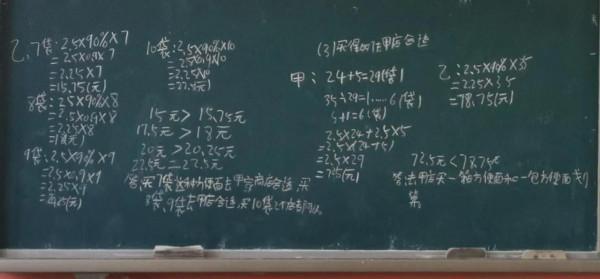 乙,7袋:2.5×90%×7
=2.5×0.9×7
=2.25×7
=15.75(元)
8袋:2.5×90%×8
=2.5×0.9×8
=2.25×8
=18(元)
9袋:2.5×90%×9
=2.5×0.9×9
=2.25×9
10袋:2.5×90%×10
=2.5×0.9×10
=2.25×10
15元>15.75元
17.5元>18元
20元>20.25元
22.5元=22.5元
答:买7袋这种方便面去甲商店合适,买
8袋、9袋去甲店合适,买10袋
(3)买得多的去甲店合适
甲:24+5=29(袋)
35÷29=1……6(袋)
5+1=6(袋)
2.5×24+2.5×5
=2.5×(24+5)
=2.5×29
=72.5(元)
乙:2.5×90%×35
=2.25×35
=78.75(元)
72.5元<78.75元
答:去甲店买一箱方便面和一包方便面
算